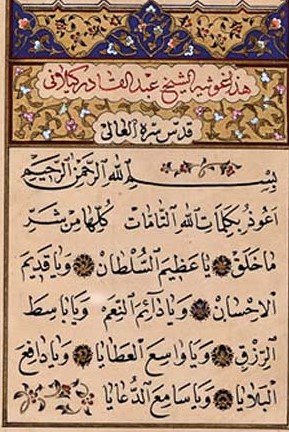 هذا غوثية الشيخ عبد القادر كيلاني
قدس سره العالي
بسم الله الرحمن الرحيم
اعوذ بكلمات الله التامات كلها من شر
ما خلق يا عظيم السلطان ويا قديم
الاحسان ويا دائم النعم ويا باسط
الرزق ويا واسع العطايا ويا دافع
البلايا ويا سامع الدعايا